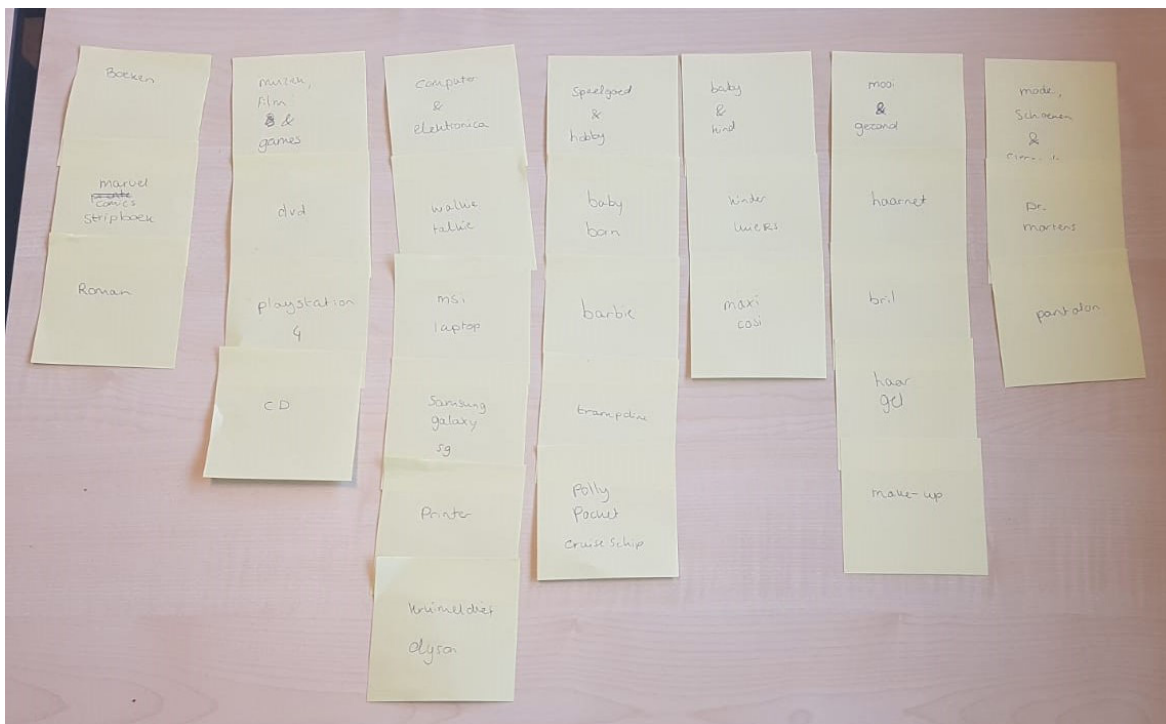 Boeken
marvel
comics
stripboek
Roman
muziek,
film
& &
games
dvd
playstation
4
CD
computer
&
elektronica
walkie
talkie
msi
laptop
Samsung
galaxy
sg
Printer
kruimeldief
dyson
Speelgoed
&
hobby
baby
born
barbie
trampoline
Polly
Pocket
cruise schip
baby
&
kind
kinder
maxi
cosi
mooi
&
gezond
haarnet
bril
haar
gel
make-up
mode,
Schoenen
&
Dr.
martens
pantalon